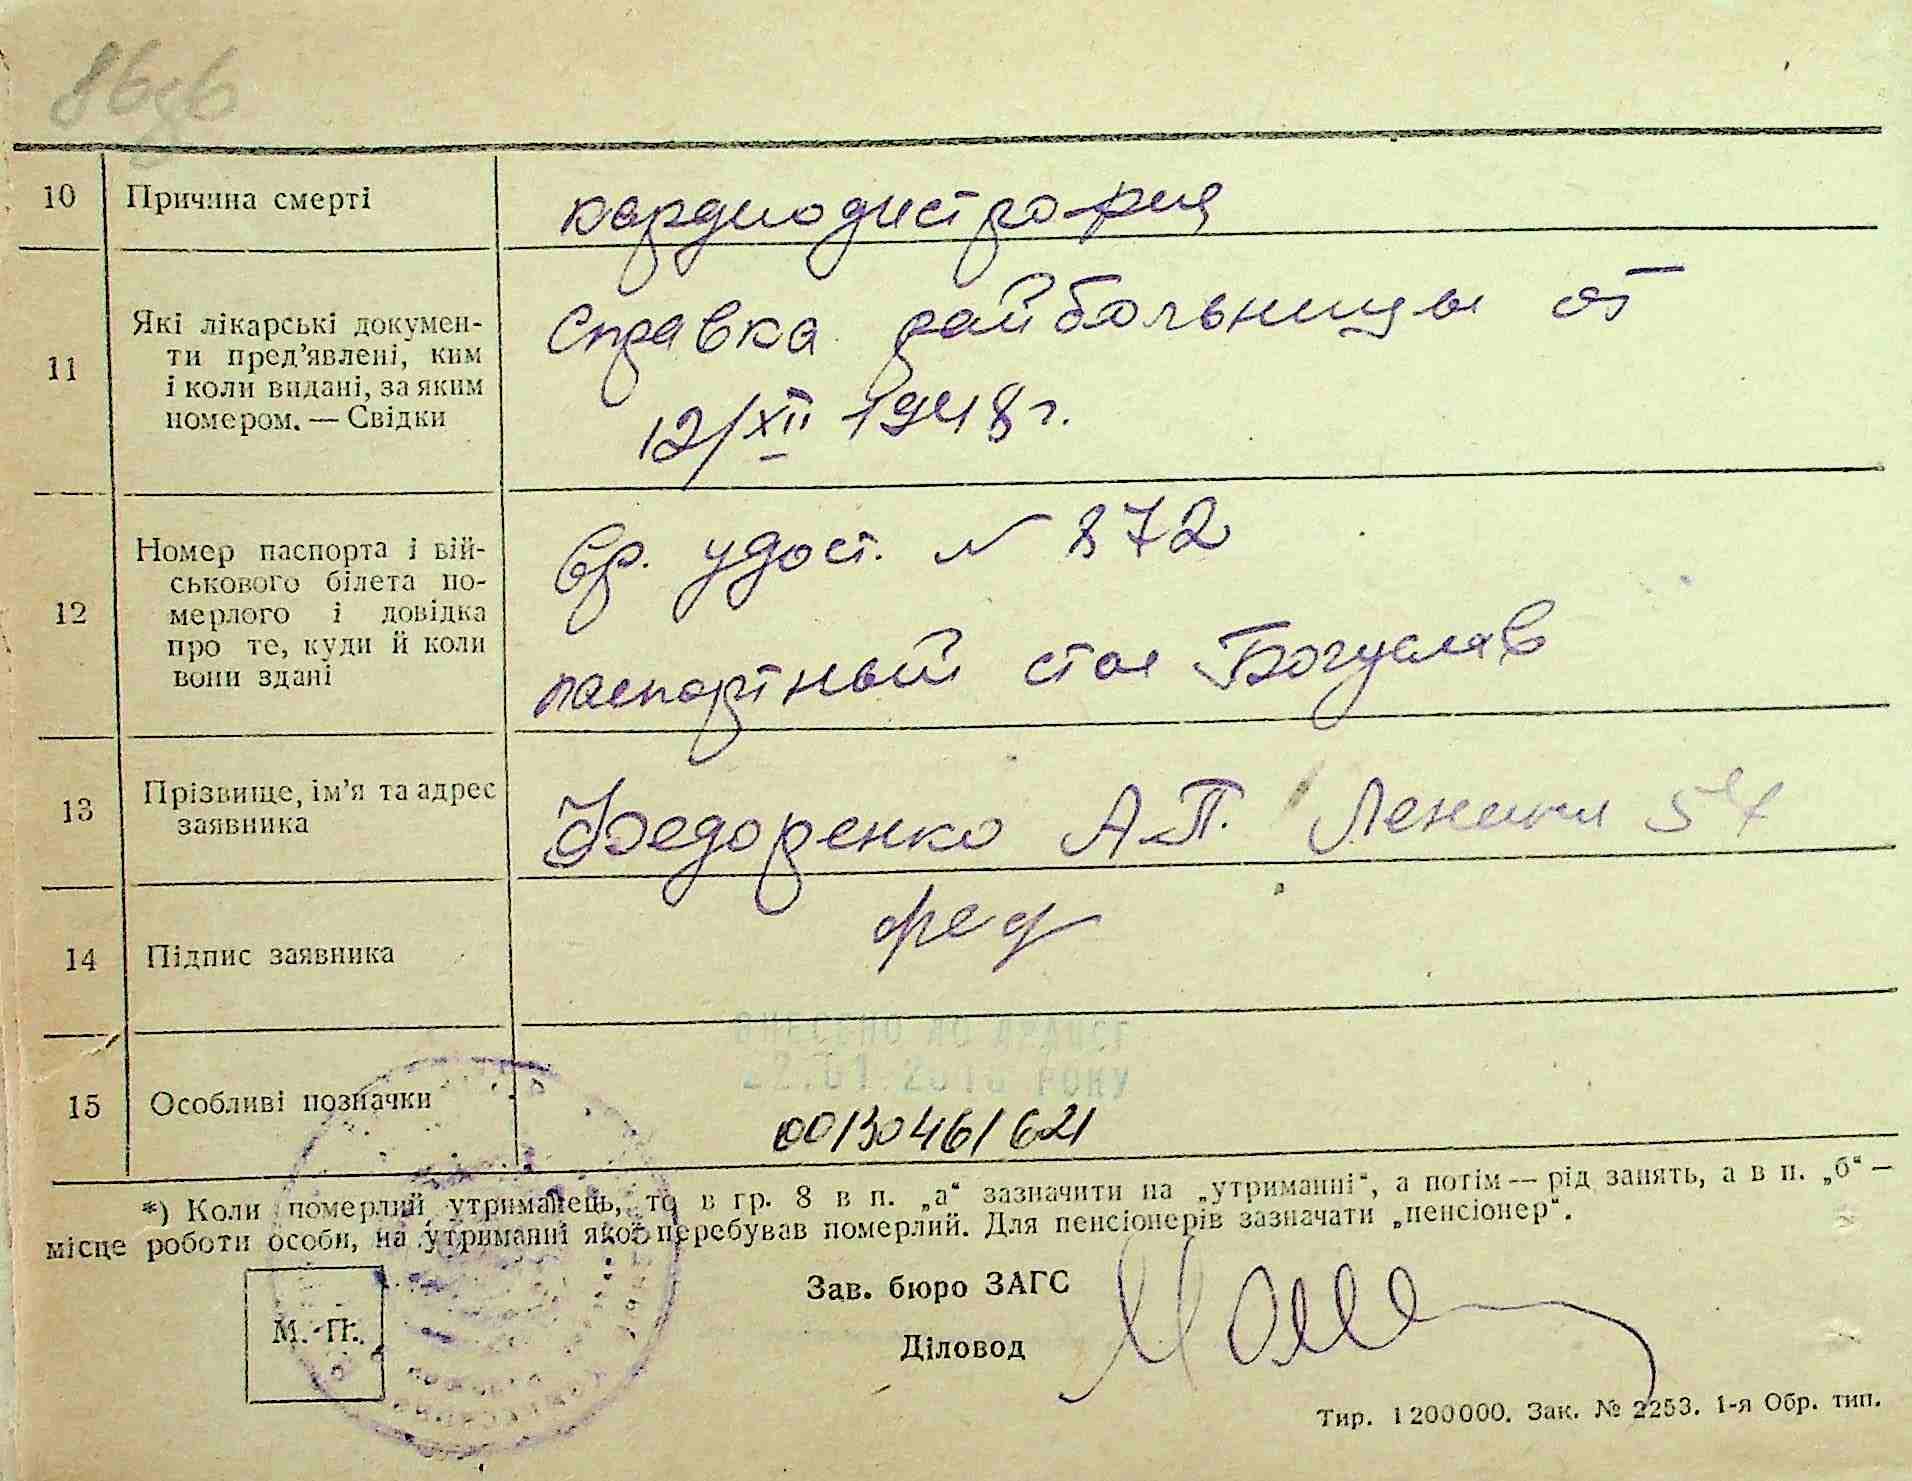 10 Причина смерті кардиодистрофия
11 Які лікарські докумен-
ти пред’явлені, ким
і коли видані, за яким
номером. — Свідки
Справка райбольницы от
12/XII 1948 г.
12 Номер паспорта і вій-
ськового білета по-
мерлого і довідка
про те, куди й коли
вони здані
Вр. удост. N 872
паспортный стол Богуслав
13 Прізвище, ім’я та адрес
заявника
Федоренко А.П. Ленина 54
14 Підпис заявника фед
ВНЕСЕНО ДО ДРАЦСГ
РОКУ
15 Особливі позначки
00130461621
*) Коли померлий утриманець, то в гр. 8 в п. „а“ зазначити на „утриманні“, а потім — рід занять, а в п. „б“ —
місце роботи особи, на утриманні якої перебував померлий. Для пенсіонерів зазначати „пенсіонер“.
Зав. бюро ЗАГС
М. П.
Діловод
Тир. 1200000. Зак. № 2253. 1-я Обр. тип.